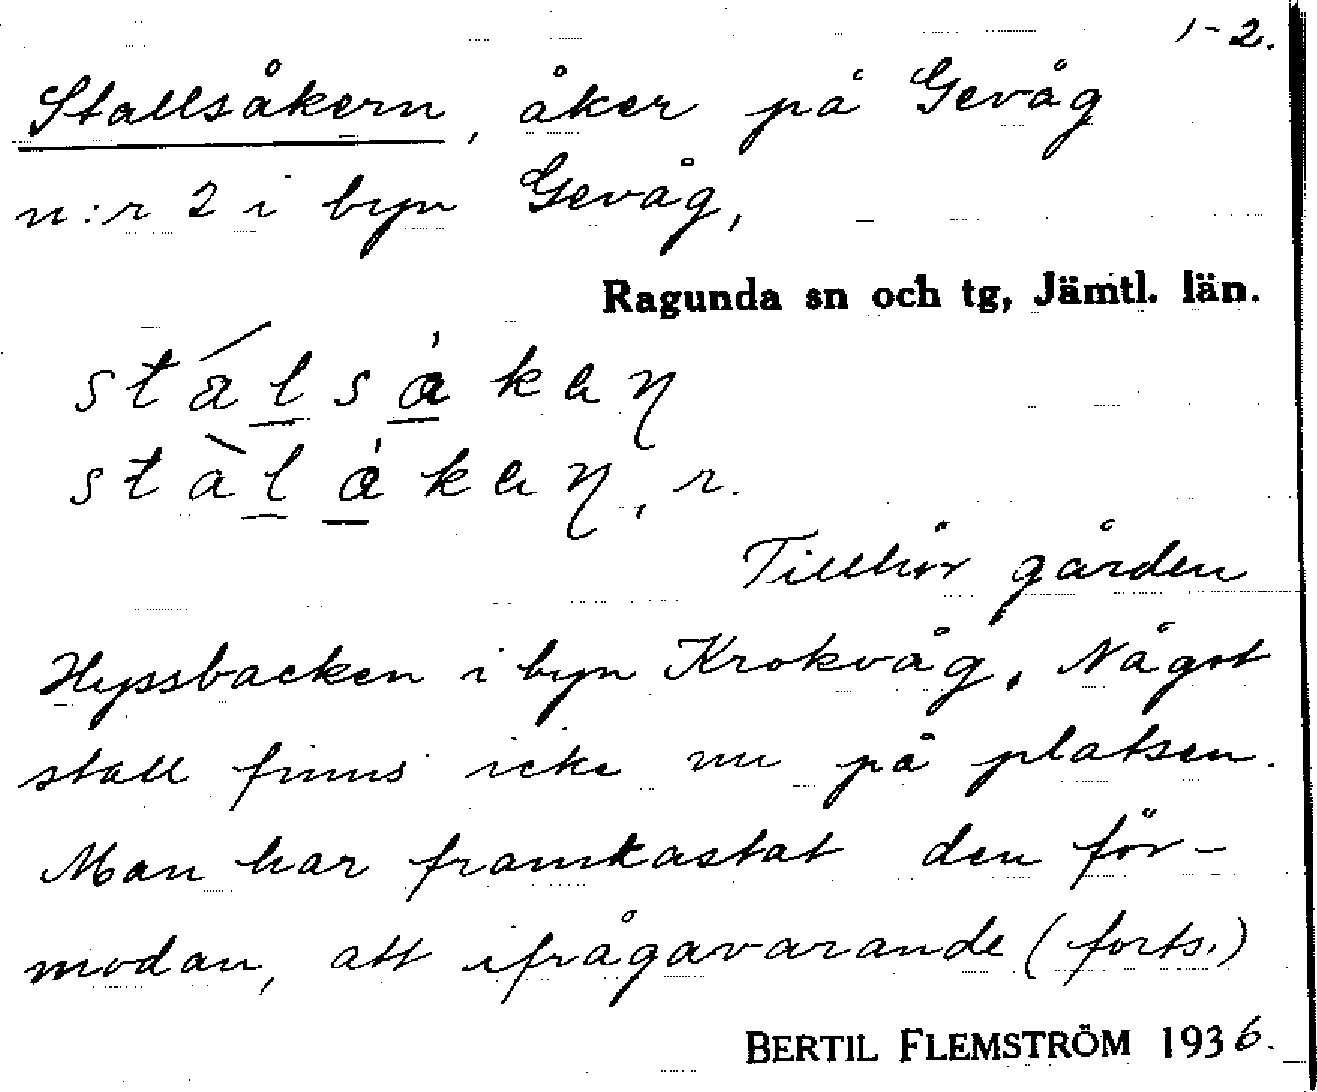 1-2.
Stallsåkern, åker på Gevåg
n:r 2 i byn Gevåg,
Ragunda sn och tg, Jämtl. län.
r.
Tillhör gården
Hyssbacken i byn Krokvåg. Något
stall finns icke nu på platsen.
Man har framkastat den för-
modan, att ifrågavarande (forts.)
BERTIL FLEMSTRÖM 1936.